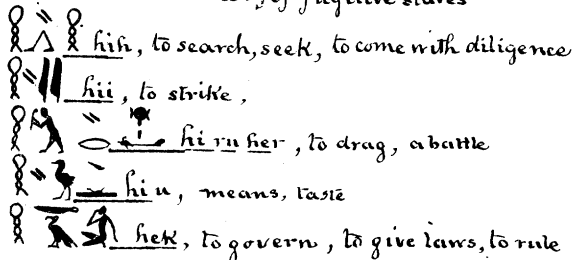 fugitive slaves
hih, to search, seek, to come with diligence
hii, to strike,
hi ru her, to drag, a battle
hi u, means, taste
hek, to govern, to give laws, to rule